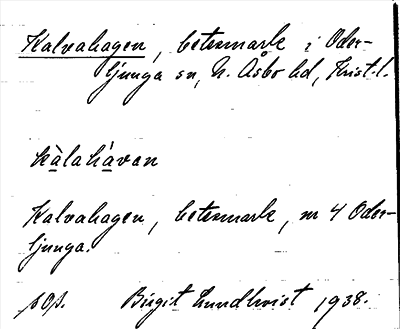 Kalvahagen, betesmark i Oder-
ljunga sn, N. Åsbo hd, Krist. l.
kàlahávan
Kalvahagen, betesmark, nr 4 Oder-
ljunga.
Birgit Lundkvist 1938.